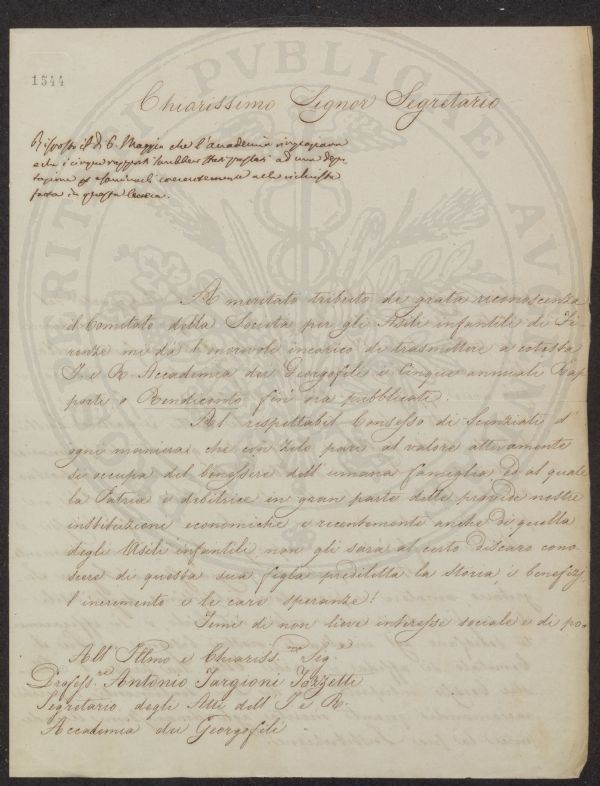 1544
PVBLICAE
Chiarissimo Signor Segretario
Risposto il dì 6. Maggio che l'accademia ringraziava
e che i cinque rapporti sarebbero stati passati ad una depu-
tazione coerentemente alla richiesta
fatta in questa lettera.
A meritato tributo di grata riconoscenza
il Comitato della Societa per gli Asili infantili di Fi-
renze mi dà l'onorevole incarico di trasmettere a cotesta
I e R Accademia dei Georgofili i Cinque annuali Rap-
porti o Rendiconto fin' ora pubblicati.
Al respettabil Consesso di Scienziati d'
ogni maniera: che con zelo pari al valore attivamente
si occupa del benessere dell'umana famiglia, da al quale
la Patria è debitrice in gran parte delle provide nostre
instituzione economiche e recentemente anche di quella
degli Asili infantili non gli sarà al certo discaro cono-
scere di questa sua figlia prediletta la storia, i benefizj
l'incremento e le care speranze!
Temi di non lieve interesse sociale e di po-
All' Illmo e Chiariss.mo Sig.
Profess.re Antonio Targioni Tozzetti
Segretario degli Atti dell' I e R.
Accademia dei Georgofili